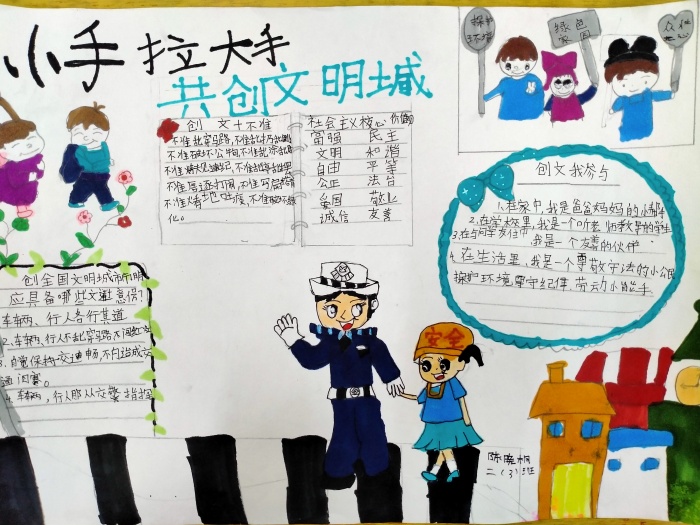 小手拉大手
共创文明城
保护
环境
绿色
家园
创文十不准
不准乱穿马路,不准乱扔乱
不准破坏公物,不准乱涂乱
不准
不准追逐打闹,不准写
不准随地吐痰,不准
化。
社会主义核心价值
富强 民主
文明 和谐
自由 平等
公正 法治
爱国 敬业
诚信 友善
创文我参与
1.在家中,我是爸爸妈妈的小帮手
2.在学校里,我是一个听老师教导的学生
3.在与同学交往中,我是一个友善的伙伴
4.在生活里,我是一个尊敬守法的小公民
保护环境,遵守纪律,劳动小能手
创全国文明城市市明
应具备哪些文
车辆、行人各行其道
2.车辆、行人不乱穿马路不闯红
3.自觉保持交通畅,不
4.车辆,行人服从交警指挥
安全
陈晓桐
二(3)班